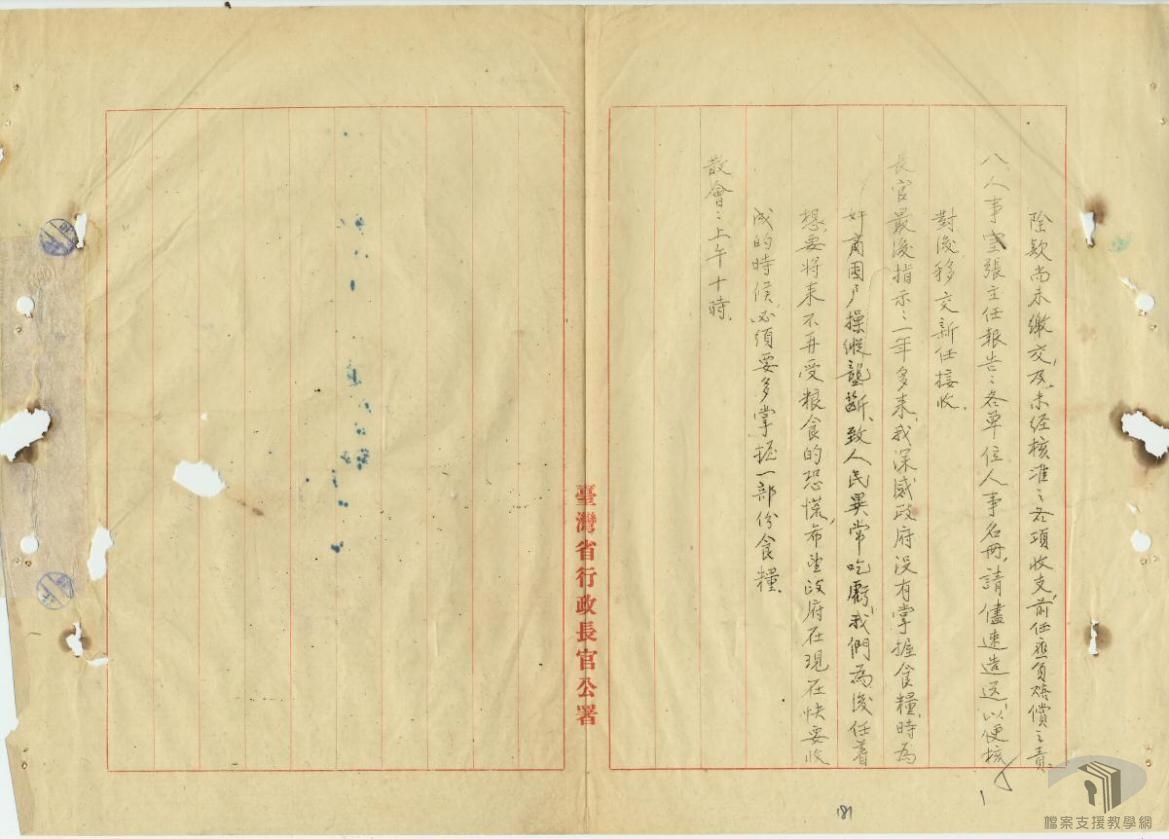 除欵尚未繳交,及未经核准之各項收支,前任應負賠償之責.
八、人事室張主任報告:各單位人事名冊,請儘速造送,以便核
對後移交新任接收.
長官最後指示:一年多来,我深感政府没有掌握食糧,時為
奸商囤戶操縱壟斷,致人民異常吃虧,我們為後任着
想,要将来不再受粮食的恐慌,希望政府在現在快要收
成的時候,必須要多掌握一部份食糧.
散會:上午十時.
臺灣省行政長官公署
181
檔案支援教學網